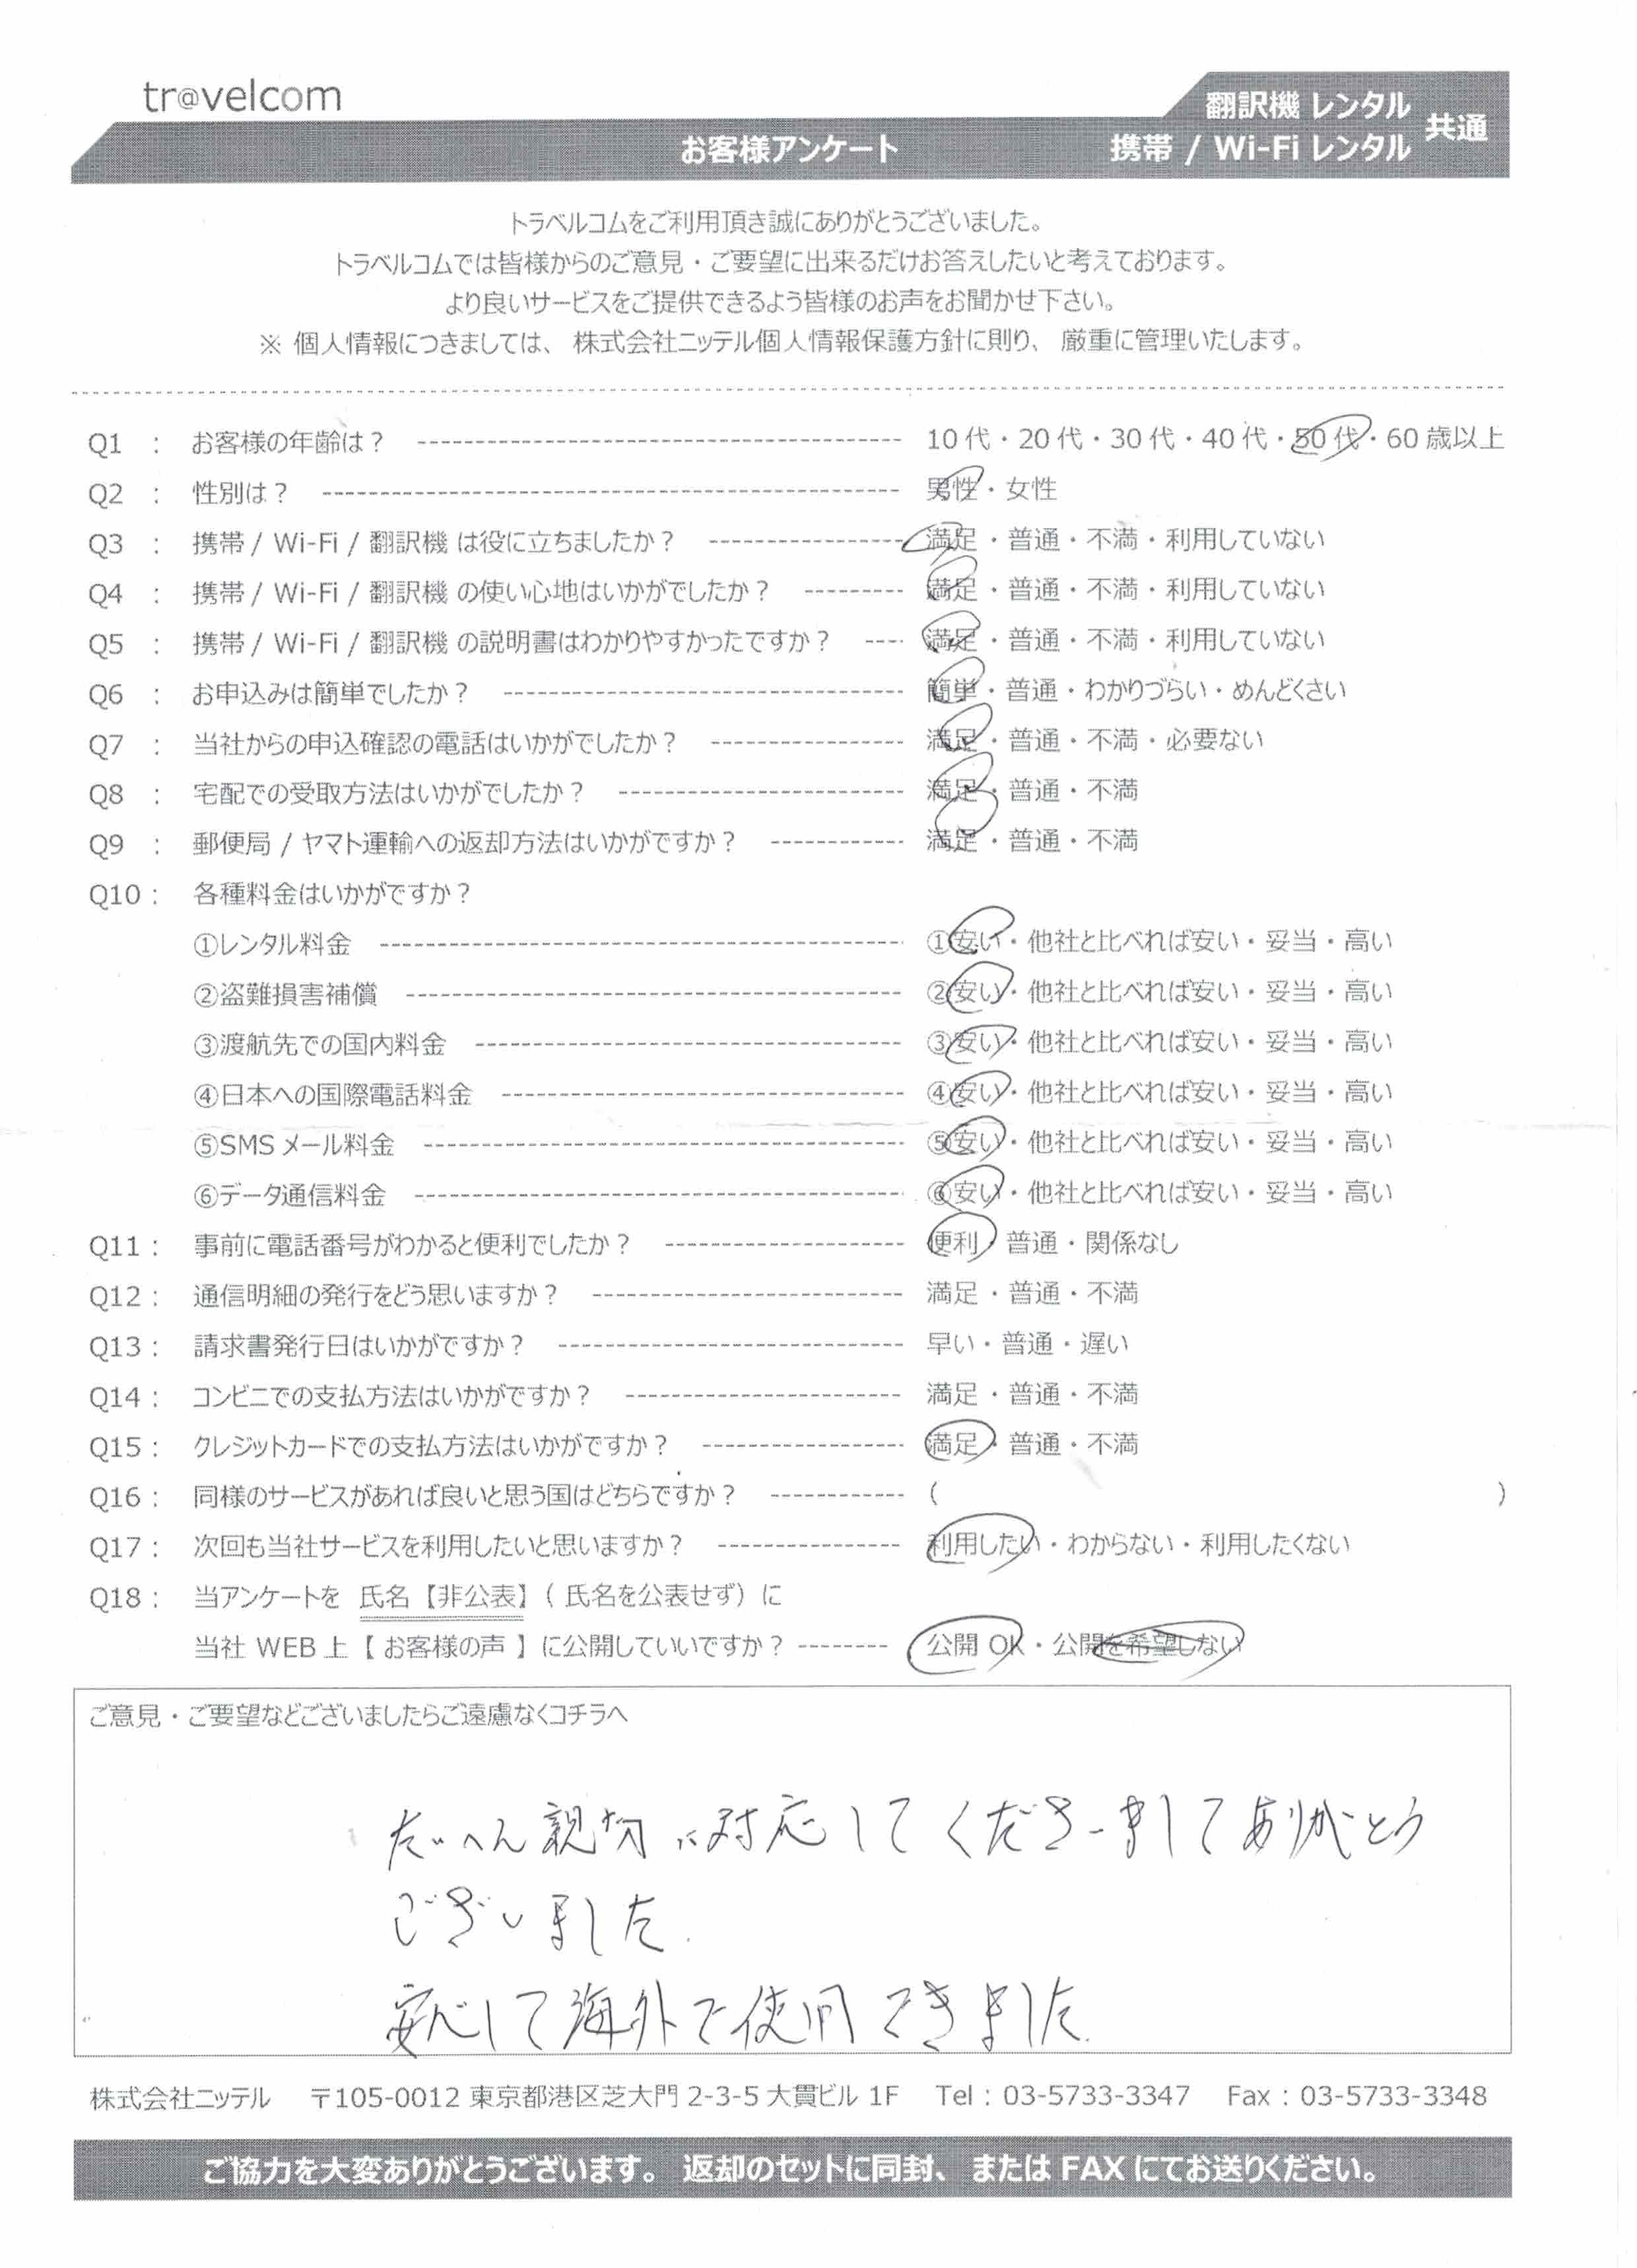 tr@velcom
お客様アンケート
翻訳機 レンタル
携帯 / Wi-Fi レンタル
共通
トラベルコムをご利用頂き誠にありがとうございました。
トラベルコムでは皆様からのご意見・ご要望に出来るだけお答えしたいと考えております。
より良いサービスをご提供できるよう皆様のお声をお聞かせ下さい。
※ 個人情報につきましては、 株式会社ニッテル個人情報保護方針に則り、 厳重に管理いたします。
Q1 : お客様の年齢は? 10代・20代・30代・40代・50代・60歳以上
Q2 : 性別は? 男性・女性
Q3 : 携帯 / Wi-Fi / 翻訳機 は役に立ちましたか? 満足・普通・不満・利用していない
Q4 : 携帯 / Wi-Fi / 翻訳機 の使い心地はいかがでしたか? 満足・普通・不満・利用していない
Q5 : 携帯 / Wi-Fi / 翻訳機 の説明書はわかりやすかったですか? 満足・普通・不満・利用していない
Q6 : お申込みは簡単でしたか? 簡単・普通・わかりづらい・めんどくさい
Q7 : 当社からの申込確認の電話はいかがでしたか? 満足・普通・不満・必要ない
Q8 : 宅配での受取方法はいかがでしたか? 満足・普通・不満
Q9 : 郵便局 / ヤマト運輸への返却方法はいかがですか? 満足・普通・不満
Q10 : 各種料金はいかがですか?
①レンタル料金 ①安い・他社と比べれば安い・妥当・高い
②盗難損害補償 ②安い・他社と比べれば安い・妥当・高い
③渡航先での国内料金 ③安い・他社と比べれば安い・妥当・高い
④日本への国際電話料金 ④安い・他社と比べれば安い・妥当・高い
⑤SMSメール料金 ⑤安い・他社と比べれば安い・妥当・高い
⑥データ通信料金 ⑥安い・他社と比べれば安い・妥当・高い
Q11 : 事前に電話番号がわかると便利でしたか? 便利・普通・関係なし
Q12 : 通信明細の発行をどう思いますか? 満足・普通・不満
Q13 : 請求書発行日はいかがですか? 早い・普通・遅い
Q14 : コンビニでの支払方法はいかがですか? 満足・普通・不満
Q15 : クレジットカードでの支払方法はいかがですか? 満足・普通・不満
Q16 : 同様のサービスがあれば良いと思う国はどちらですか? ( )
Q17 : 次回も当社サービスを利用したいと思いますか? 利用したい・わからない・利用したくない
Q18 : 当アンケートを 氏名【非公表】( 氏名を公表せず) に
当社 WEB 上【 お客様の声 】に公開していいですか? 公開 OK・公開を希望しない
ご意見・ご要望などございましたらご遠慮なくコチラへ
たいへん親切に対応してくださいましてありがとう
ございました.
安心して海外で使用できました.
株式会社ニッテル 〒105-0012 東京都港区芝大門 2-3-5 大貫ビル 1F Tel : 03-5733-3347 Fax : 03-5733-3348
ご協力を大変ありがとうございます。 返却のセットに同封、 または FAX にてお送りください。